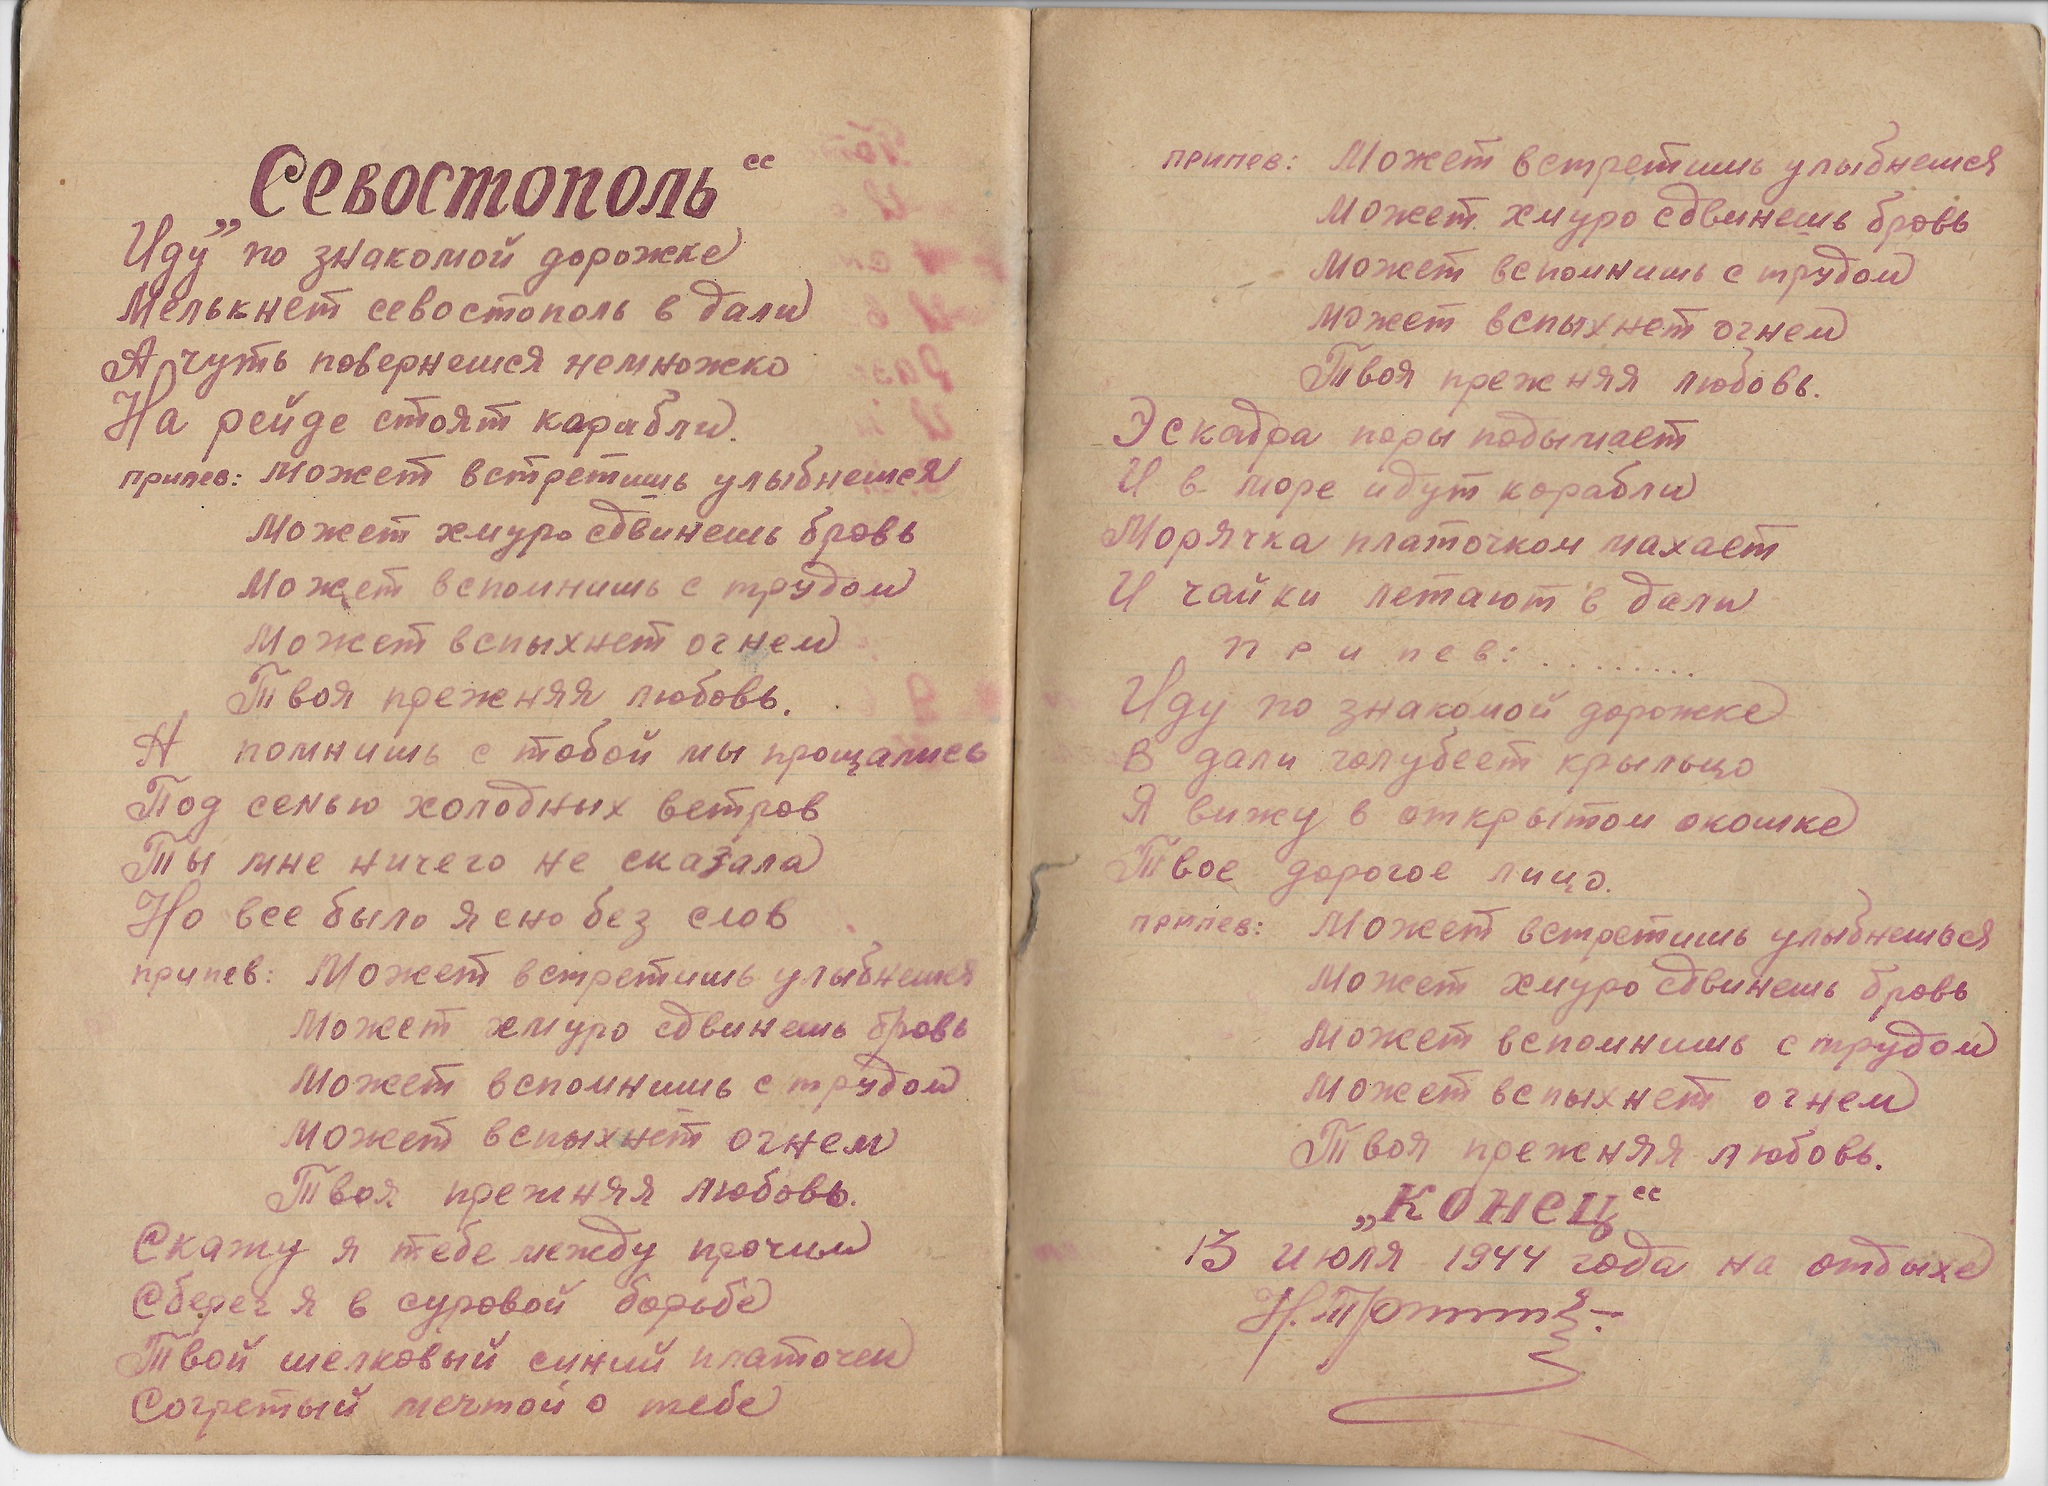 „Севостополь“
Иду по знакомой дорожке
Мелькнет севостополь в дали
А чуть повернешся немножко
На рейде стоят карабли.
припев: Может встретишь улыбнешся
Может хмуро сдвинешь бровь
Может вспомнишь с трудом
Может вспыхнет огнем
Твоя прежняя любовь.
А помнишь с тобой мы прощались
Под сенью холодных ветров
Ты мне ничего не сказала
Но все было ясно без слов
припев: Может встретишь улыбнешся
Может хмуро сдвинешь бровь
Может вспомнишь с трудом
Может вспыхнет огнем
Твоя прежняя любовь.
Скажу я тебе между прочим
Сберег я в суровой борьбе
Твой шелковый синий платочек
Согретый мечтой о тебе
припев: Может встретишь улыбнешся
Может хмуро сдвинешь бровь
Может вспомнишь с трудом
Может вспыхнет огнем
Твоя прежняя любовь.
Эскадра пары подымает
И в море идут корабли
Морячка платочком махает
И чайки летают в дали
припев: .........
Иду по знакомой дорожке
В дали голубеет крыльцо
Я вижу в открытом окошке
Твое дорогое лицо.
припев: Может встретишь улыбнешься
Может хмуро сдвинешь бровь
Может вспомнишь с трудом
Может вспыхнет огнем
Твоя прежняя любовь.
„конец“
13 июля 1944 года на отдыхе